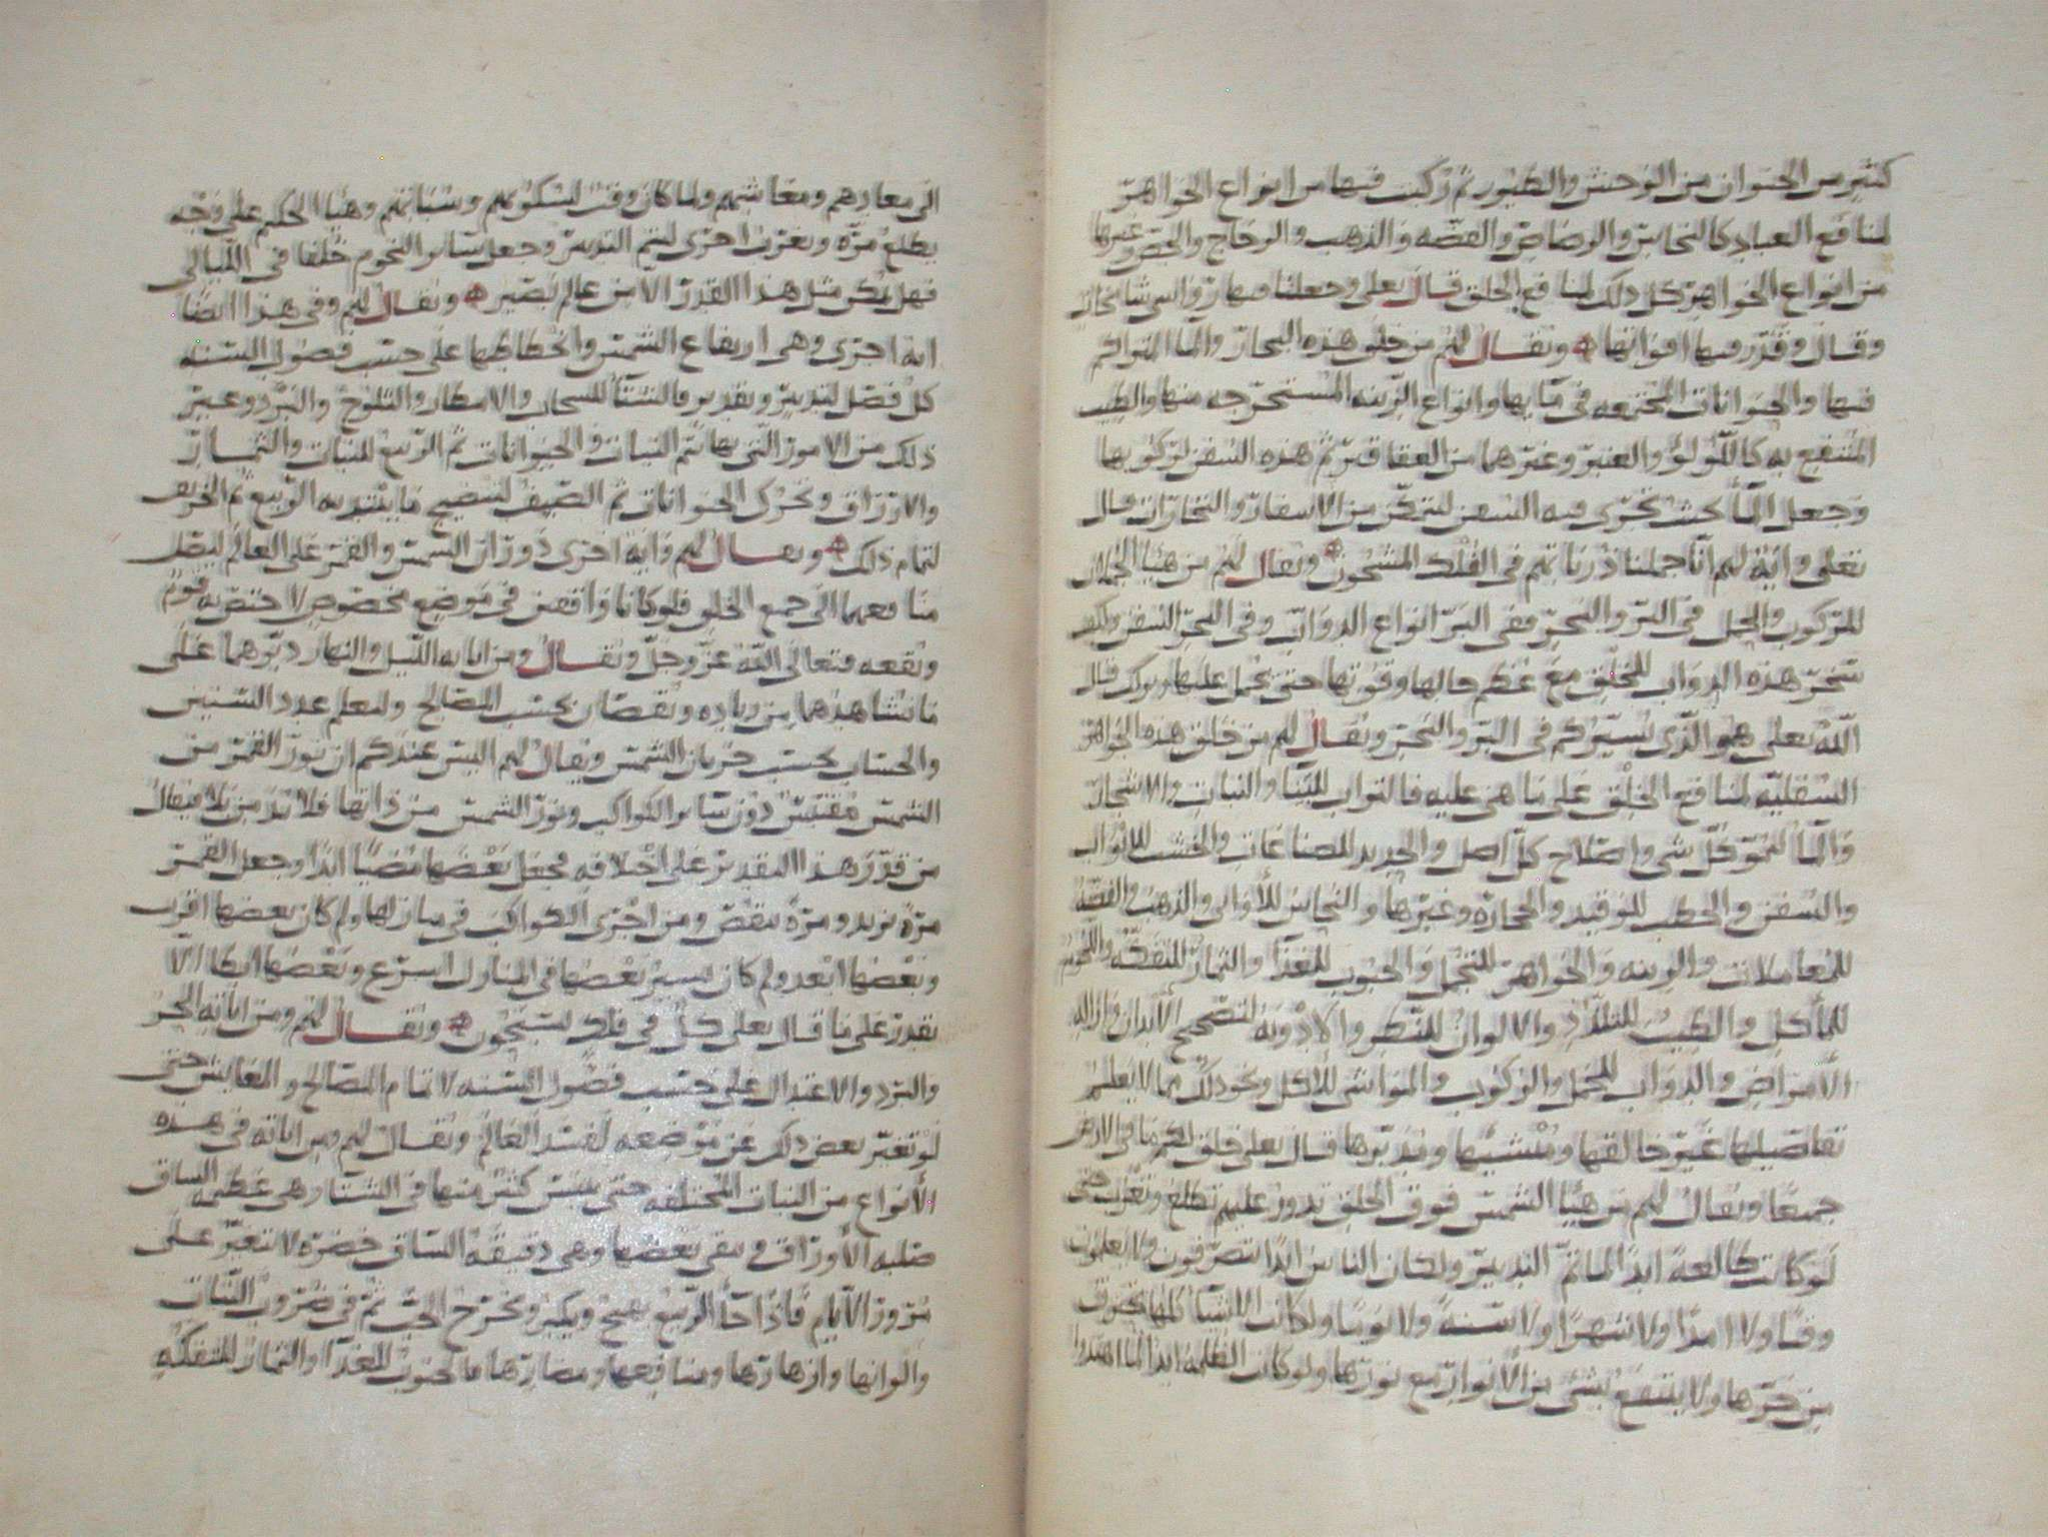 كثير من الحيوان من الوحش والطيور ثم ركبت فيها من انواع الجواهر
لمنافع العباد كالنحاس والرصاص والفضه والذهب والزجاج والجص وغيرها
من انواع الجواهر كل ذلك لمنافع الخلق قال تعلى وجعلنا فيها رواسي شامخات
وقال وقدر فيها اقواتها ويقال لهم من خلق هذه البحار والما المتراكم
فيها والحيوانات المجتمعه في مايها وانواع الزينه المستخرجه منها والطيب
المنتفع به كاللؤلؤ والعنبر وغيرهما من العقاقير ثم هذه السفن لركوبها
وجعل الما بحيث تجري فيه السفن ليتمكن من الاسفار والتجارات قال
تعلى واية لهم انا حملنا ذرياتهم في الفلك المشحون ويقال لهم من هيا الجمال
للركوب والحمل في البر والبحر ففي البر انواع الدواب وفي البحر السفن
سخر هذه الدواب للخلق مع عظم حالها وقوتها حتى يحمل عليها ويركب قال
الله تعلى هو الذي يسيركم في البر والبحر ويقال لهم من خلق هذه الجواهر
السفليه لمنافع الخلق على ما هي عليه فالتراب للبنا والنبات والاشجار
والما لنمو كل شي واصلاح كل اصل والحديد للصناعات والخشب للابواب
والسفن والحطب للوقيد والحجاره وغيرها والنحاس للأواني والذهب والفضة
للمعاملات والزينه والجواهر للتجمل والحبوب للغذا والثمار للتفكه واللحوم
للمأكل والطيب للتلذذ والالوان للنظر والادويه لتصحيح الأبدان وازالة
الأمراض والدواب للحمل والركوب والمواشي للأكل ونحو ذلك مما لا يعلم
تفاصيلها غير خالقها ومنشيها ومدبرها قال تعلى خلق لكم ما في الارض
جميعا ويقال لهم من هيا الشمس فوق الخلق تدور عليهم تطلع وتغرب حتى
لو كانت طالعة ابدا لما تم التدبير ولكان الناس ابدا يتصرفون ولا يعلمون
وقتا ولا امدا ولا شهرا ولا سنة ولا يوما ولكانت الاشيا كلها تحترق
من حرها ولا ينتفع بشي من الأنوار مع نورها ولو كانت الظلمة ابدا لما اهتدوا
الى معادهم ومعاشهم ولما كان وقت لسكونهم وسباتهم وهيا الحكيم على وجه
يطلع مره ويغرب اخرى ليتم التدبير وجعل سائر النجوم خلفا في الليالي
فهل يكن مثل هذا القدر الا من عالم بصير ويقال لهم وفي هذا ايضا
اية اخرى وهي ارتفاع الشمس وانحطاطها على حسب فصول السنه
كل فصل لتدبير وتقدير فالشتا للسحاب والامطار والثلوج والبرد وغير
ذلك من الامور التي بها تتم النبات والحيوانات ثم الربيع للنبات والثمار
والاوراق وتحرك الحيوانات ثم الصيف لتنضيج ما يبتدي به الربيع ثم الخريف
لتمام ذلك ويقال لهم واية اخرى دوران الشمس والقمر على العالم ليصل
منافعهما الى جميع الخلق فلو كانا واقفين في موضع مخصوص لاختص به قوم
وبقعه فتعالى الله عز وجل ويقال ومن اياته الليل والنهار دبرهما على
ما نشاهدهما من زياده ونقصان بحسب المصالح وليعلم عدد السنين
والحساب بحسب جريان الشمس ويقال لهم اليس عندكم ان نور القمر من
الشمس مقتبس دون سائر الكواكب ونور الشمس من ذاتها فلا بد من بلا فيقال
من قدر هذا التقدير على اختلافه فجعل بعضها مضيا ابدا وجعل القمر
مرة يزيد ومرة ينقص ومن اجرى الكواكب في منازلها ولم كان بعضها اقرب
وبعضها ابعد ولم كان يسير بعضها في المنازل اسرع وبعضها ابطا الا
بقدر على ما قال تعلى كل في فلك يسبحون ويقال لهم ومن اياته الحر
والبرد والاعتدال على حسب فصول السنه لاتمام المصالح والمعايش حتى
لو تغير بعض ذلك عن موضعه لفسد العالم ويقال لهم ومن اياته في هذه
الأنواع من النبات المختلفه حتى يبس كثير منها في الشتا وهي عظيمه الساق
صلبه الأوراق ويبقى بعضها وهي دقيقة الساق خضره لا تتغير على
مرور الأيام فاذا جاء الربيع ويكبر ويخرج الحب ثم في ضروب النبات
والوانها وازهارها ومنافعها ومضارها فالحبوب للغذا والثمار للتفكه